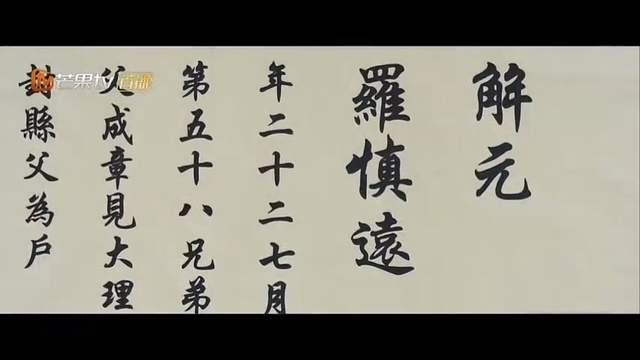 解元
羅慎遠
年二十二七月
第五十八兄弟
父成章見大理
封縣父為户
芒果TV